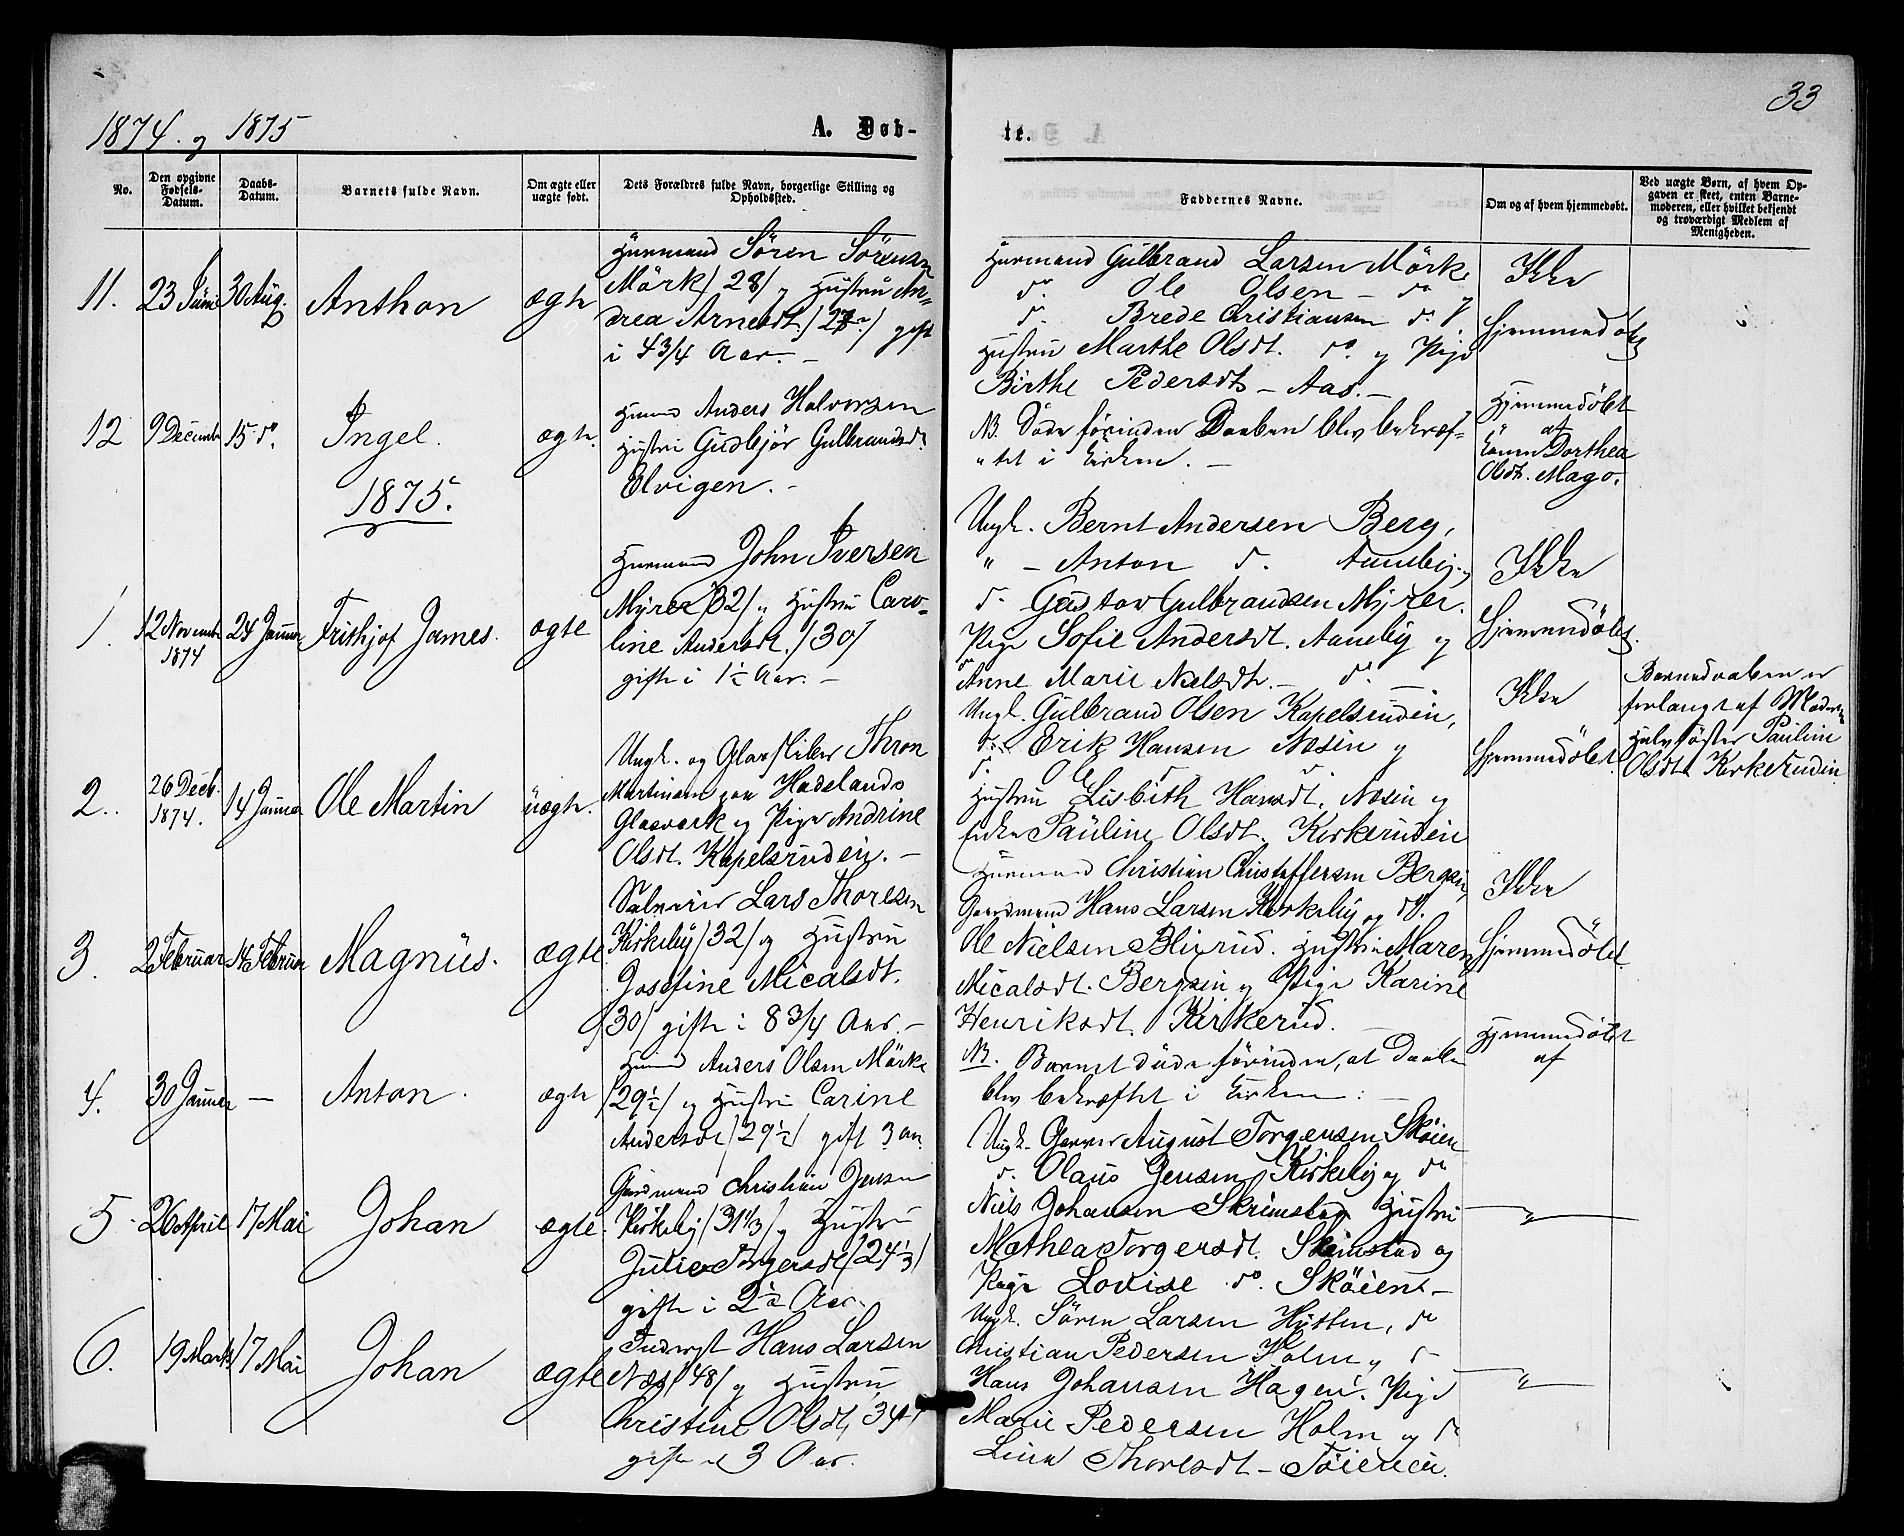 33
1874. og 1875
A. Døb-
te.
No.
Den opgivne Fødsels-Datum.
Daabs-Datum.
Barnets fulde Navn.
Om ægte eller uægte født.
Dets Forældres fulde Navn, borgerlige Stilling og Opholdssted.
Faddernes Navne.
Om og af hvem hjemmedøbt.
Ved uægte Børn, af hvem Opgaven er skeet, enten Barnemoderen, eller hvilket bekjendt og troværdigt Medlem af Menigheden.
11.
23 Juni
30 Aug.
Anthon
ægte
Huusmand Sören Sörensen
Mörk /28/ og Hustru An=
drea Arnesdt. gift
i 4 3/4 Aar. –
Huusmand Gulbrand Larsen Mörk
do. Ole Olsen – do
do. Brede Christiansen do.
Hustru Marthe Olsdt. do. og Pige
Birthe Pedersdt – Aas. –
Ikke
Hjemmedöbt
12
9 December
15 do.
Ingel.
ægte.
Anders Halvorsen
Hustru Gudbjör Gulbrandsdt.
Elvigen. –
NB. Döde förinden Daaben blev bekræf-
tet i Kirken. –
Hjemmedöbt
af
Konen Dorthea
Olsdt. Mago.
1875.
1.
12 November
1874
24 Januar
Frithjof James.
ægte
Huusmand John Iversen
Myrer /32/ og Hustru Caro-
line Andersdt. /30/
gifte i 1½ Aar. –
Ungk. Bernt Andersen Berg,
" – Anton do. Aaneby og
do. Gustav Gulbrandsen Myrer.
Pige Sofie Andersdt. Aaneby og
Anne Marie Nielsdt. – do. –
Ikke
Hjemmedöbt.
2.
26 Decb.
1874.
14 Januar
Ole Martin
uægte.
Ungk. og Glassliber Thron
Martinsen paa Hadelands
Glasværk og Pige Andrine
Olsdt. Kapelsrudein. –
Ungk. Gulbrand Olsen Kapelsrudein,
do. Erik Hansen Næsin og
do. Ole do. do.
Hustru Lisbeth Hansdt. Næsin og
Enke Pauline Olsdt. Kirkerudein
Ikke
Hjemmedöbt
Barnedaaben er
forlangt af Moderens
Halvsöster Pauline
Olsdt. Kirkerudin
3.
2 Februar
14 Februar
Magnus.
ægte
Lars Thoresen
Kirkeby /32/ og Hustru
Josefine Micalsdt.
/30/ gifte i 8 3/4 Aar. –
Huusmand Christian Christoffersen Bergsin,
Gaardmand Hans Larsen Kirkeby og do.
Ole Nielsen Bligrud. Hustru Maren
Micalsdt. Bergsin og Pige Karine
Henriksdt. Kirkerud. –
Ikke
Hjemmedöbt.
4.
30 Januar
–
Anton.
ægte
Anders Olsen Mörk
/29½/ og Hustru Carine
Andersdt /29½/ gift 3 Aar.
NB. Barnet döde förinden, at Daaben
blev bekræftet i Kirken: –
Hjemmedöbt
af
5.
26 April
17 Mai
Johan
ægte
Gaardmand Christian Jensen
Kirkeby /31 1/3/ og Hustru
Julie Torgersdt /24 1/3/
gifte i 2½ Aar.
Ungk. August Torgersen Skøien
do. Olaus Jensen Kirkeby og do
Niels Johansen Skrimstad Hustru
Mathea Torgersdt. Skrimstad og
Pige Lovise do. Skøien –
"
6.
19 Marts
17 Mai
Johan
ægte
Hans Larsen
Næs /48/ og Hustru
Christine Olsdt, 34
gifte i 3 Aar.
Ungk. Sören Larsen Hytten, do
Christian Pedersen Holm og do
Hans Johansen Hagen. Pige
Marie Pedersen Holm og do
Lina Thoresdt –
"